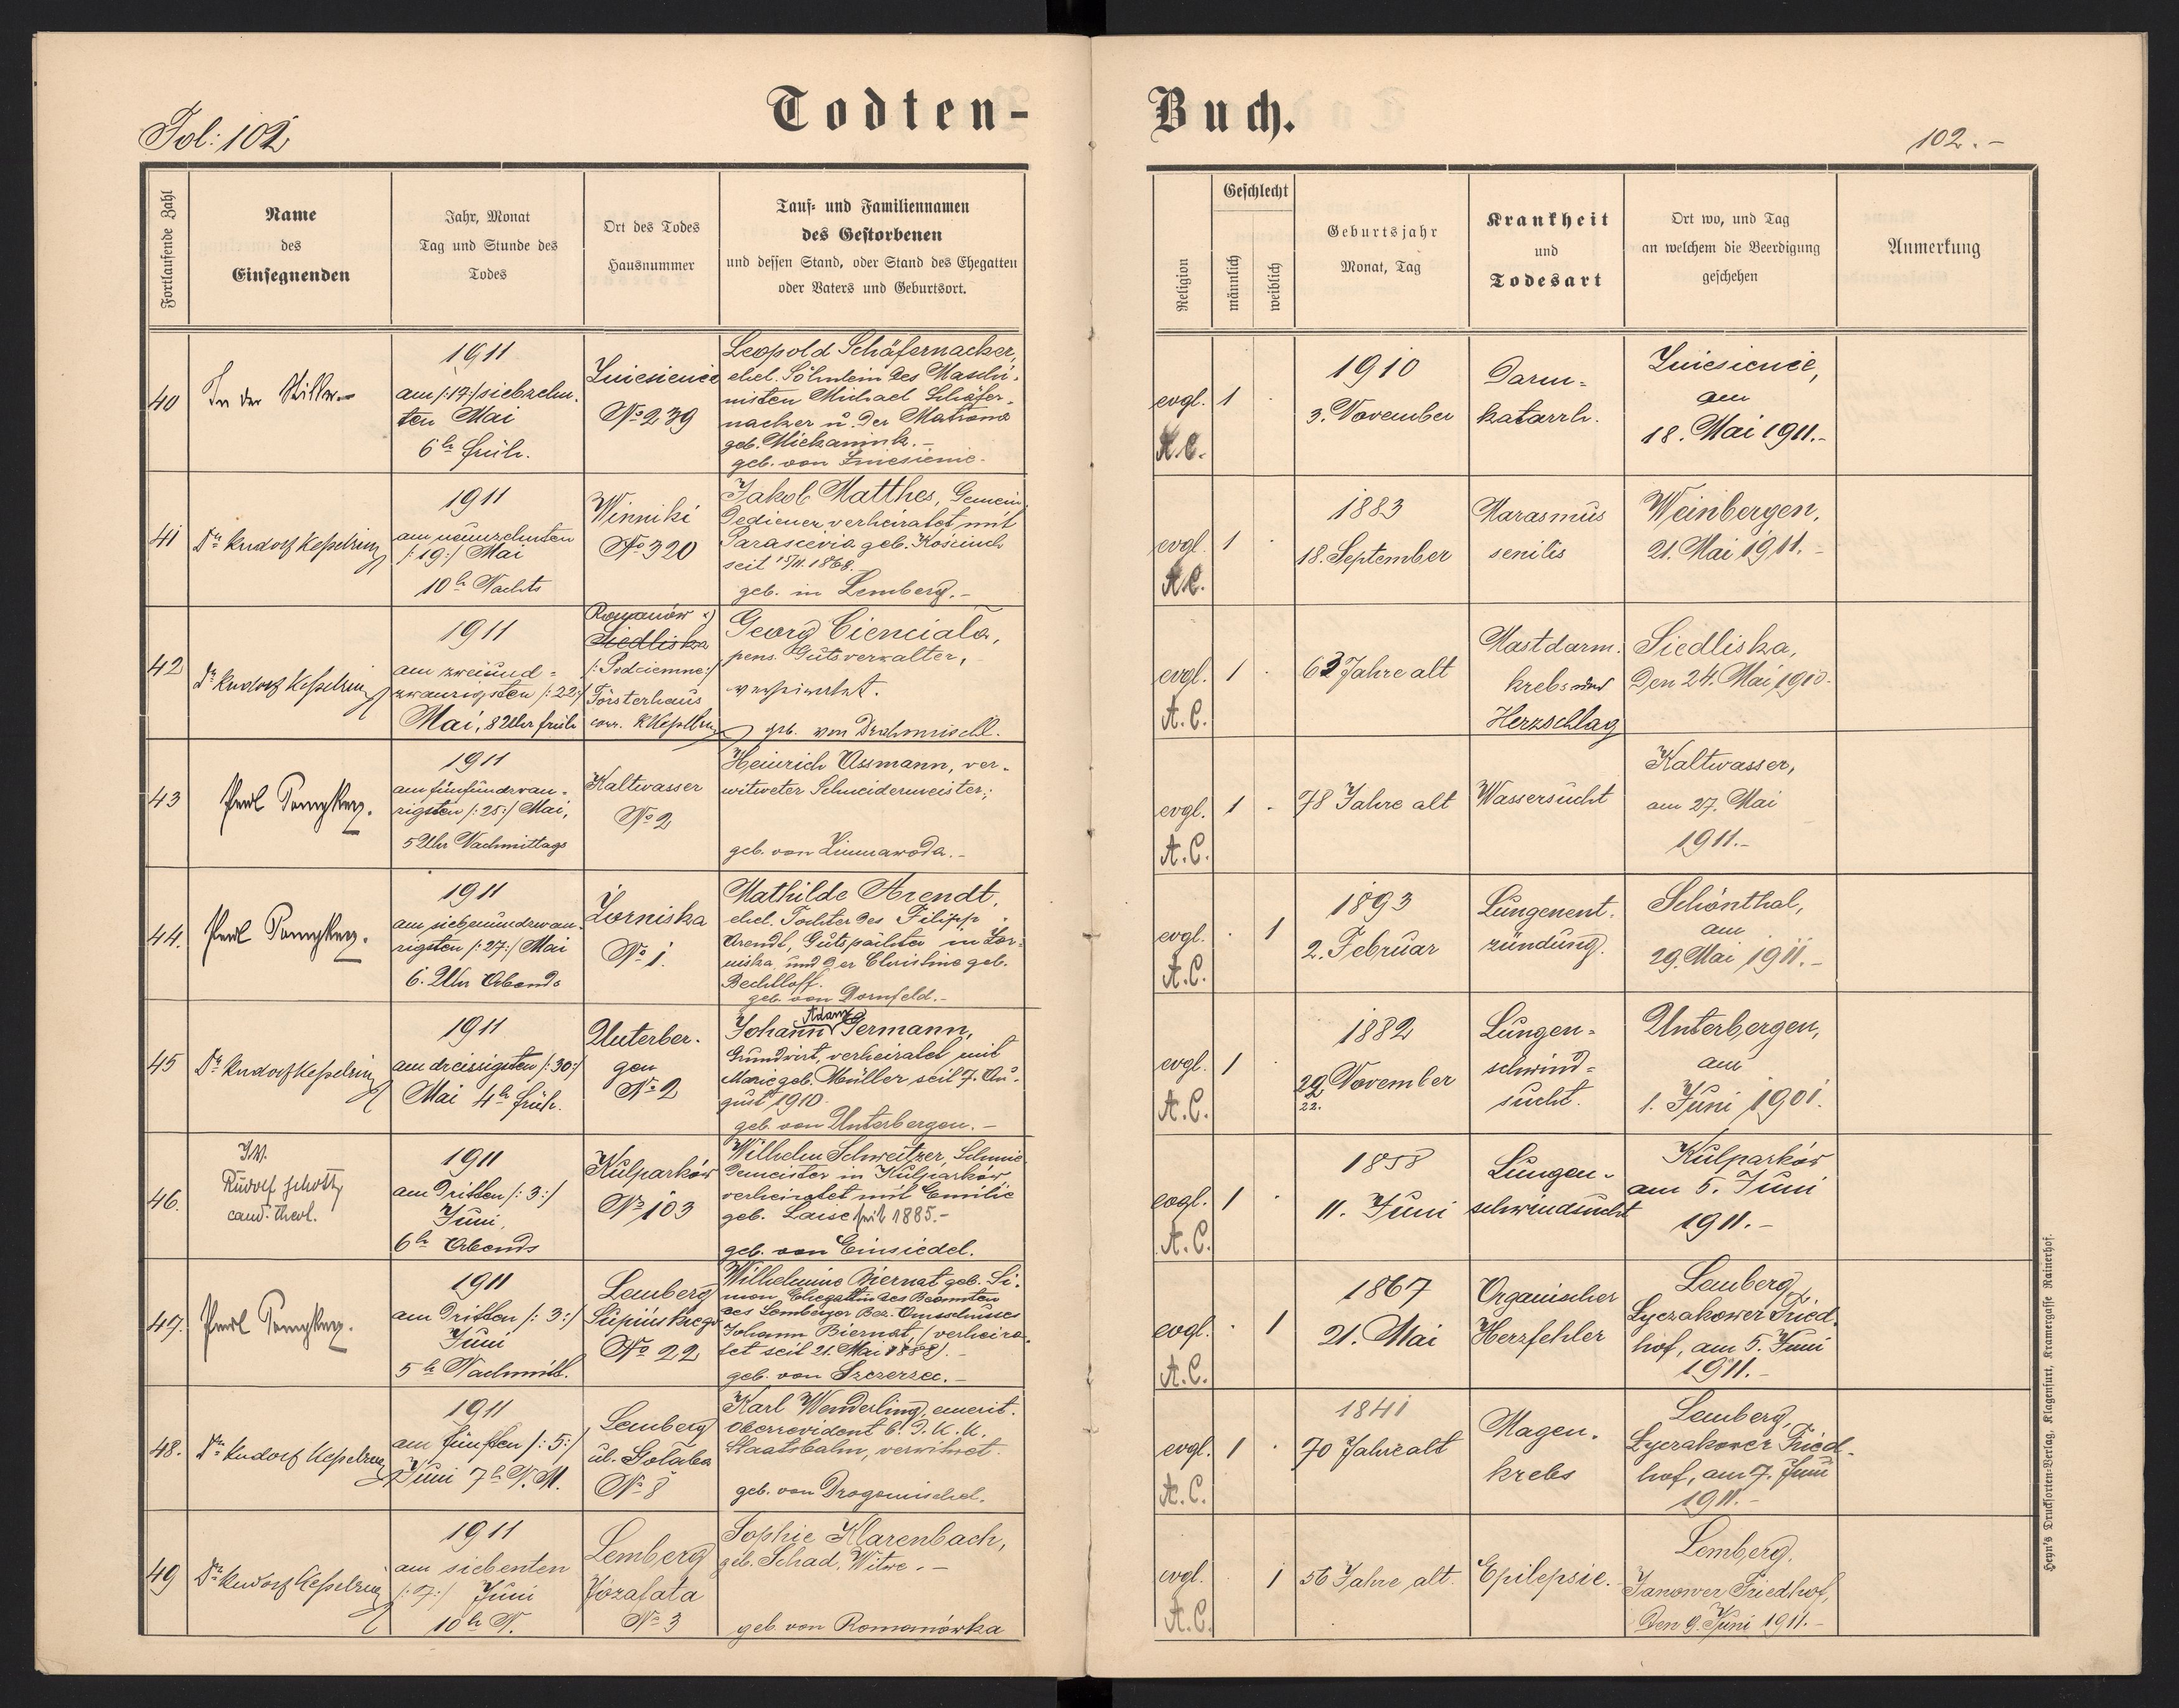 Todten-
Buch.
Fol: 102
102.-
Fortlaufende Zahl
Name
des
Einsegnenden
Jahr, Monat
Tag und Stunde des
Todes
Ort des Todes
Hausnummer
Tauf- und Familiennamen
des Gestorbenen
und dessen Stand, oder Stand des Ehegatten
oder Vaters und Geburtsort.
Religion
Geschlecht
männlich
weiblich
Geburtsjahr
Monat, Tag
Krankheit
und
Todesart
Ort wo, und Tag
an welchem die Beerdigung
geschehen
Anmerkung
40
In der Stille.-
1911
am /:17:/ siebzehn-
ten Mai
6h früh.
Zniesienie
No 239
Leopold Schäfernacker,
ehel. Söhnlein des Maschi-
nisten Michael Schäfer-
nacker u. der Matrona
geb.
geb. von Zniesienie.
evgl.
A.C.
1
1910
3. November
Darm-
katarrh.
Zniesienie,
am
18. Mai 1911.-
41
Dr Rudolf Kesselring
1911
am neunzehnten
/:19:/ Mai
10h Nachts
Winniki
No 320
Jakob Matthes, Gemein-
dediener, verheiratet mit
Parascevia geb.
seit 15/11. 1868.
geb. in Lemberg.-
evgl.
A.C.
1
1883
18. September
Marasmus
senilis
Weinbergen,
21. Mai 1911.-
42
Dr Rudolf Kesselring
1911
am zweiund-
zwanzigsten /:22:/
Mai, 8 Uhr früh
Romanów x)
Siedliska
/:Podciemne:/
Försterhaus
corr. RKesselring
Georg Cienciala,
pens. Gutsverwalter,
verheiratet.
geb. von Drahomischl.
evgl.
A.C.
1
63 Jahre alt
Mastdarm-
krebs und
Herzschlag
Siedliska,
den 24. Mai 1910.
43
1911
am fünfundzwan-
zigsten /:25:/ Mai,
5 Uhr Nachmittags
Kaltwasser
No 2
Heinrich Assmann, ver-
witweter Schneidermeister;
geb. von Zimnawoda.-
evgl.
A.C.
1
78 Jahre alt
Wassersucht
Kaltwasser,
am 27. Mai
1911.-
44.
1911
am siebenundzwan-
zigsten /:27:/ Mai
6. Uhr Abends
Zorniska
No 1.
Mathilde Arendt,
ehel. Tochter des Filipp
Arendt, Gutspächter in Zor-
niska und der Christine geb.
Bechtloff.
geb. von Dornfeld.-
evgl.
A.C.
1
1893
2. Februar
Lungenent-
zündung.
Schönthal,
am
29. Mai 1911.-
45
Dr Rudolf Kesselring
1911
am dreissigsten /:30:/
Mai 4h früh.
Unterber-
gen
No 2
Adam
Johann Germann,
Grundwirt, verheiratet mit
Marie geb. Müller seit 7. Au-
gust 1910.
geb. von Unterbergen.-
evgl.
A.C.
1
1882
29. November
22.
Lungen-
schwind-
sucht.
Unterbergen,
am
1. Juni 1901.
46.
I.V.
Rudolf Schott,
cand. theol.
1911
am dritten /:3:/
Juni,
6h Abends
Kulparków
No 103
Wilhelm Schweitzer, Schmie-
demeister in Kulparków,
verheiratet mit Emilie
geb. Laise seit 1885.-
geb. von Einsiedel.
evgl.
A.C.
1
1858
11. Juni
Lungen-
schwindsucht
Kulparków
am 5. Juni
1911.-
47.
1911
am dritten /:3:/
Juni
5h Nachmitt.
Lemberg
Supińskiego
No 22
Wilhelmine Biernat geb. Si-
mon Ehegattin des Beamten
des Lemberger Bez. Ausschusses
Johann Biernat, (verheira-
tet seit 21. Mai 1888).-
geb. von Szczerzec.-
evgl.
A.C.
1
1867
21. Mai
Organischer
Herzfehler
Lemberg,
Lyczakower Fried-
hof, am 5. Juni
1911.-
48.
Dr Rudolf Kesselring
1911
am fünften /:5:/
Juni 7h N.M.
Lemberg
ul. Gołąba
No 8
Karl Wenderling, emerit.
Oberrevident b. d. K. K.
Staatsbahn, verwitwet.
geb. von Drogomischel.
evgl.
A.C.
1
1841
70 Jahre alt
Magen-
krebs
Lemberg,
Lyczakower Fried-
hof, am 7. Juni
1911.-
49
Dr Rudolf Kesselring
1911
am siebenten
/:7:/ Juni
10h N.
Lemberg
Jozafata
No 3
Sophie Klarenbach,
geb. Schad, Witwe.-
geb. von Romanówka
evgl.
A.C.
1
56 Jahre alt.
Epilepsie.
Lemberg,
Janower Friedhof,
den 9. Juni 1911.-
Heyn's Drucksorten-Verlag, Klagenfurt, Kramergasse Rainerhof.